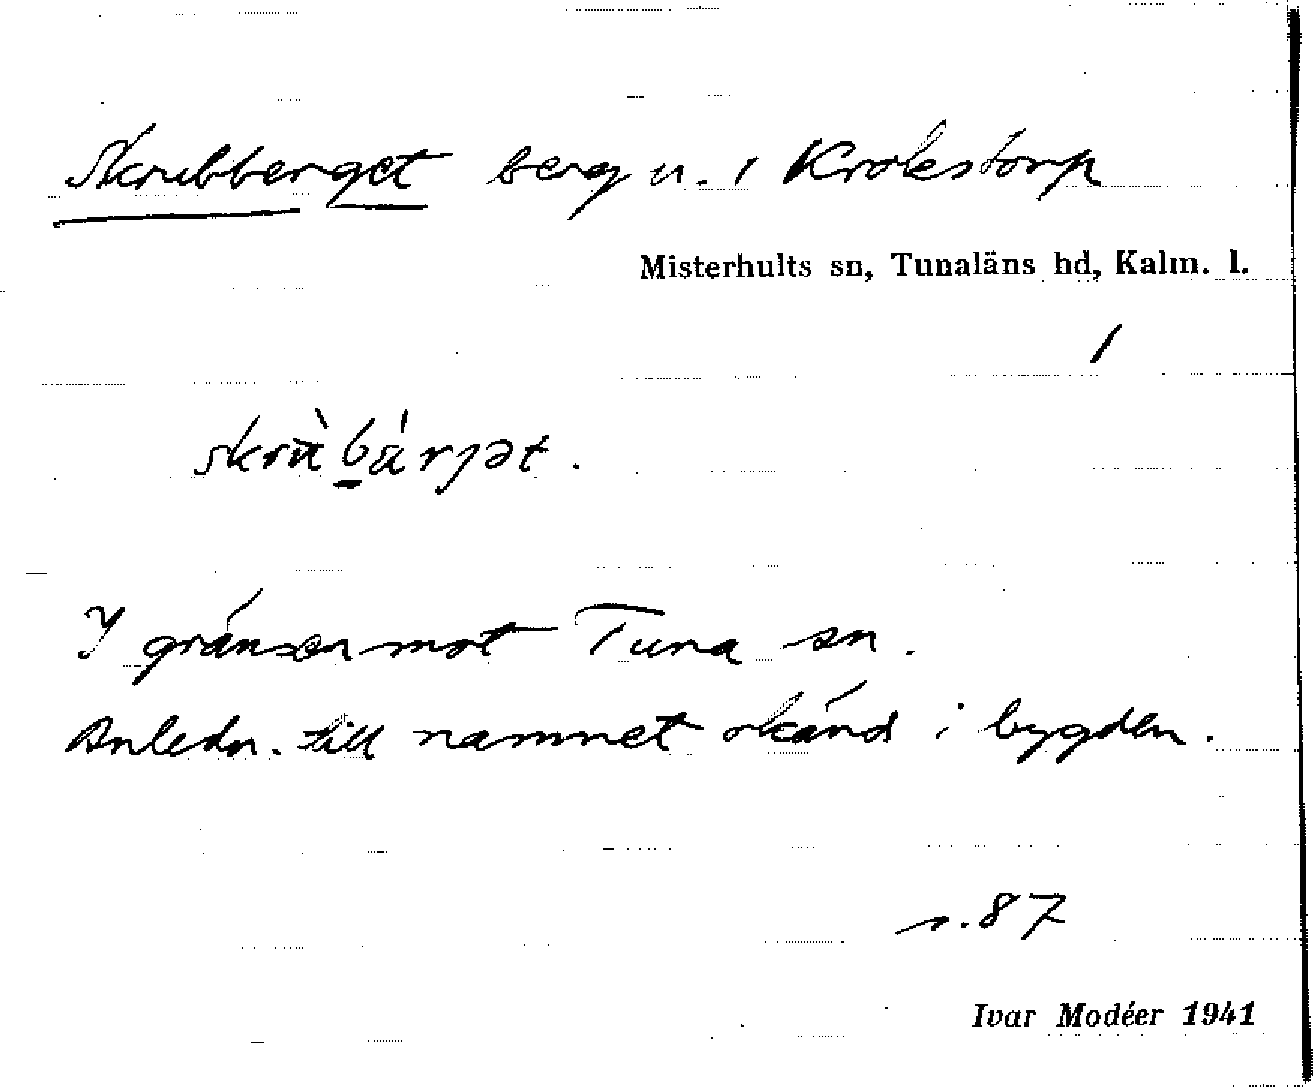 Skrubberget berg u. / Krokstorp
Misterhults sn, Tunaläns hd, Kalm. l.
/
I gränsen mot Tuna sn.
Anledn. till namnet okänd i bygden.
s. 87
Ivar Modéer 1941